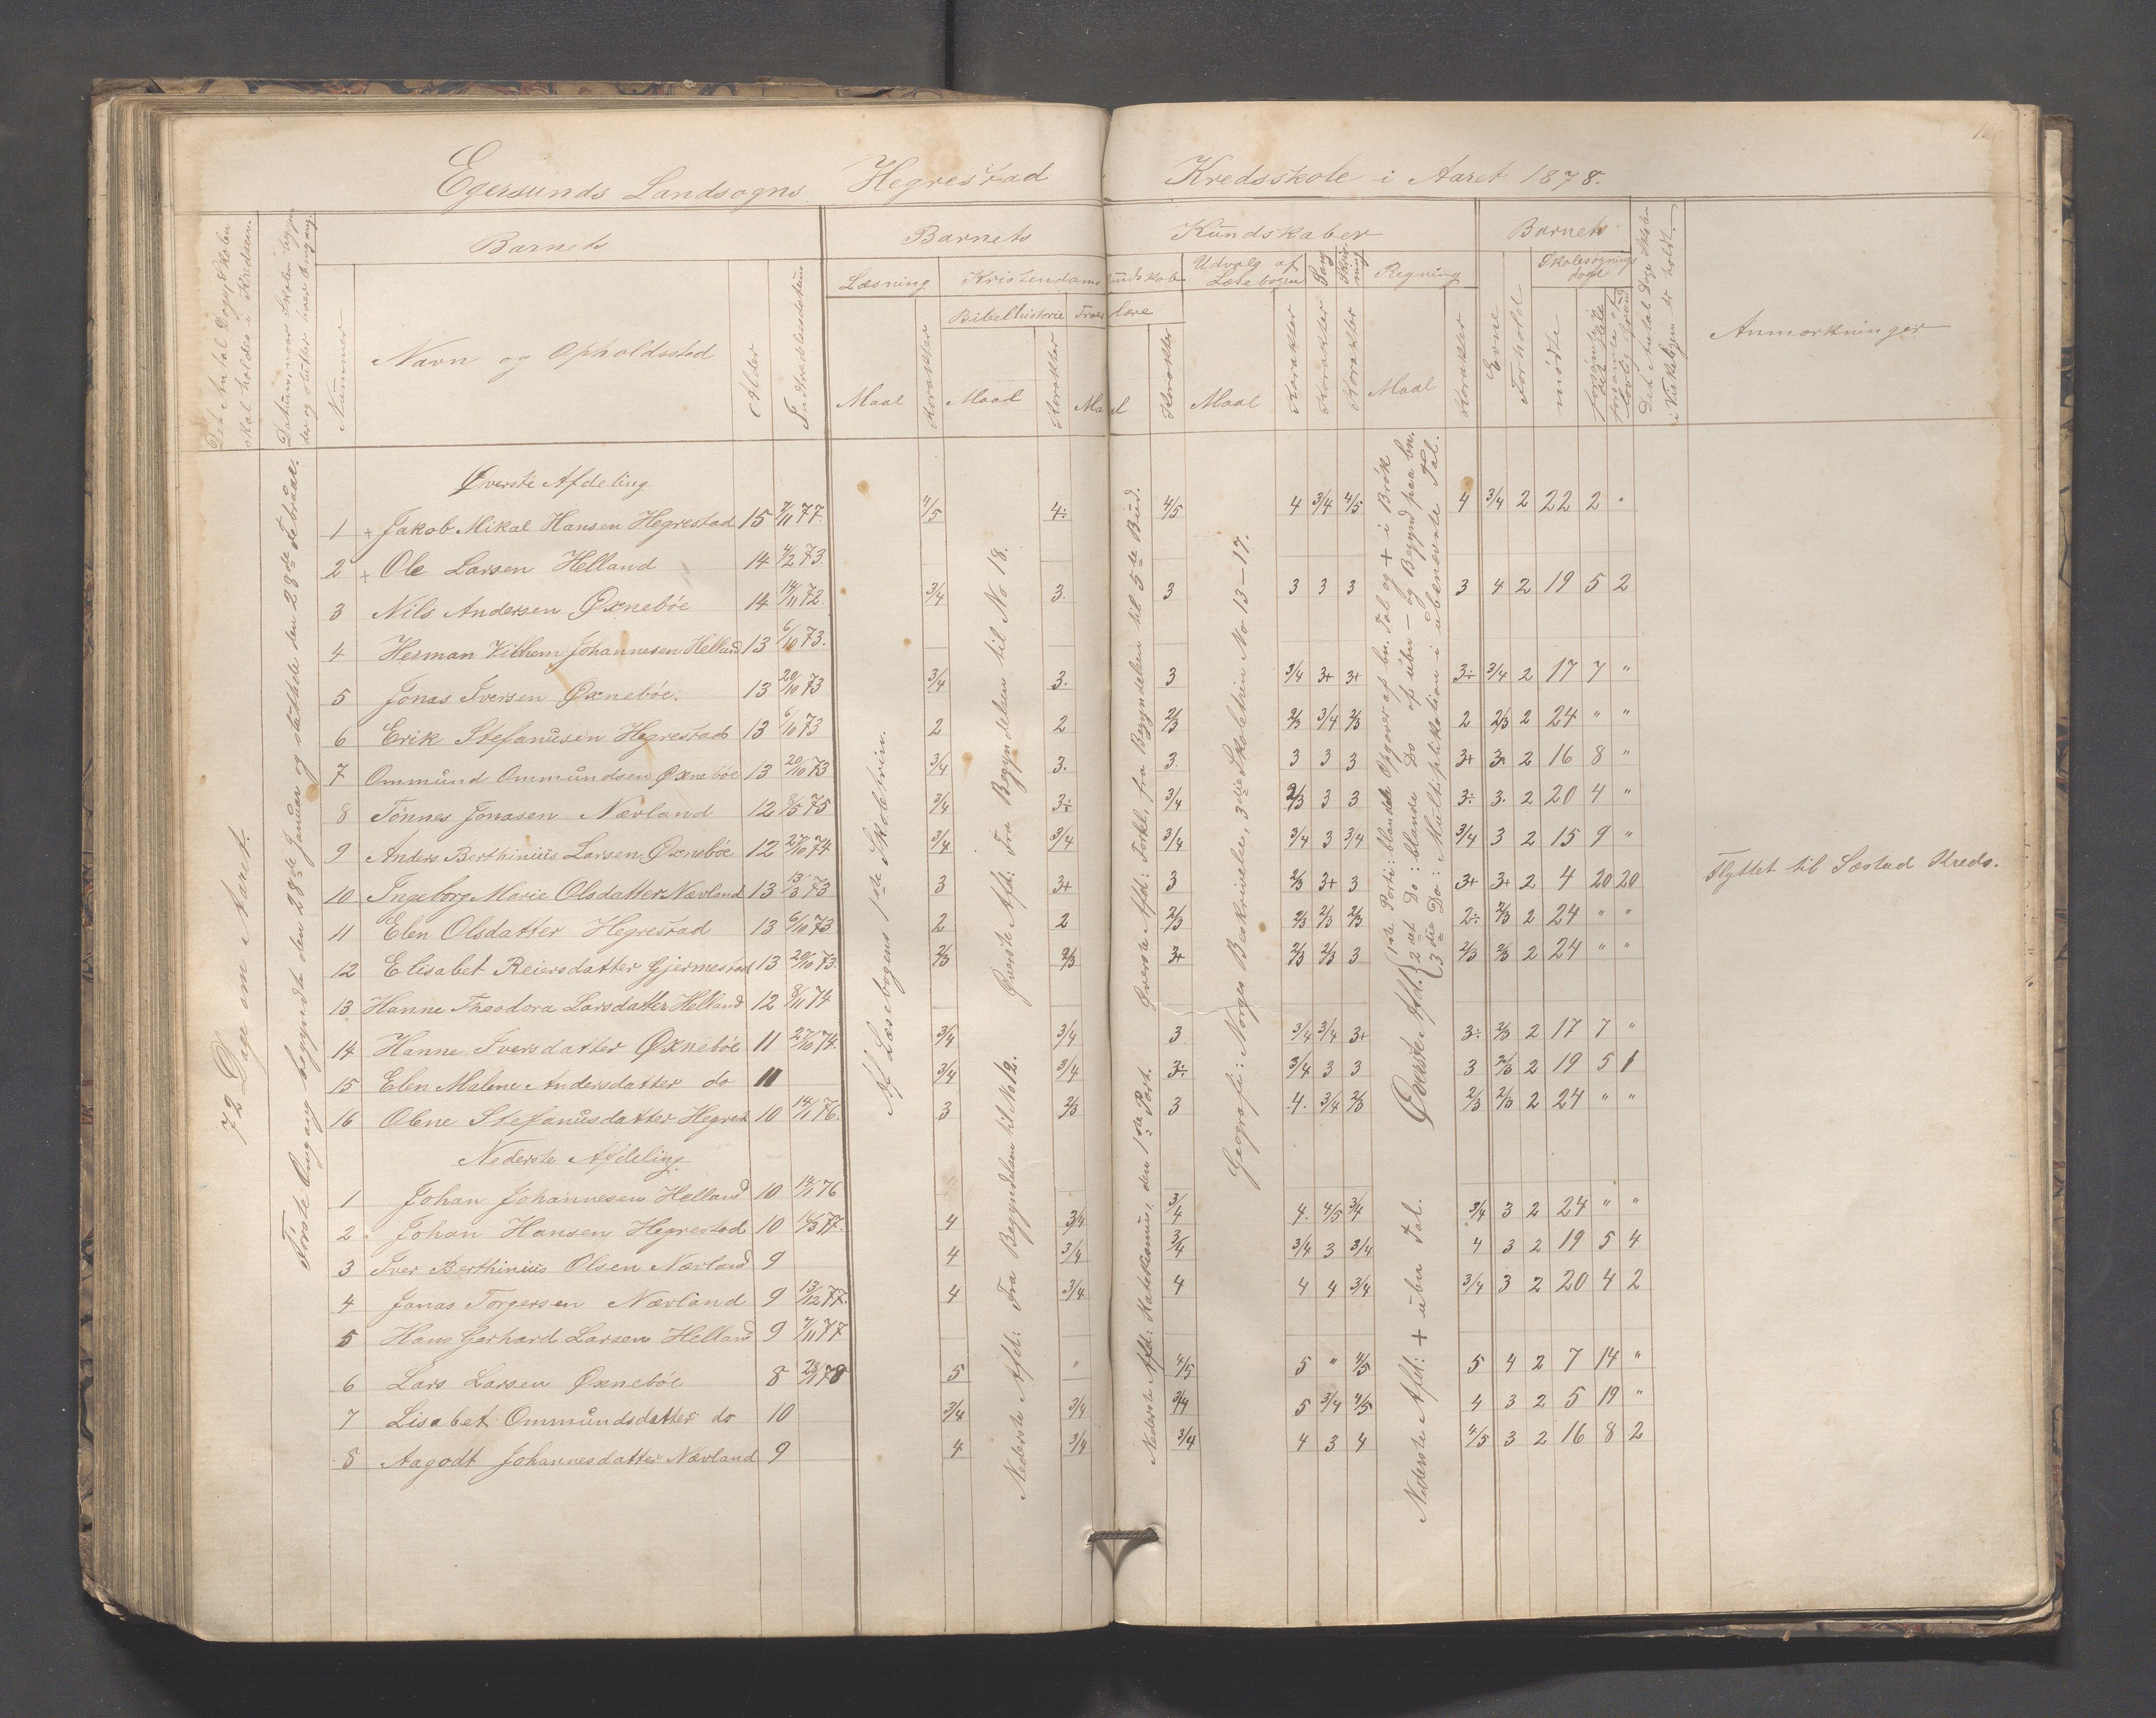 Egersunds Landsogns Hegrestad Kredsskole i Aaret 1878.
Det Antal Dage, Skolen skal holdes i Kredsen.
Datum, naar Skolen begynder og slutter hver Omgang.
Barnets
Nummer
Navn og Opholdssted
Alder
Indtrædelsesdatum
Barnets Kundskaber
Læsning
Maal
Karakter
Kristendomskundskab
Bibelhistorie
Maal
Karakter
Troeslære
Maal
Karakter
Udvalg af Læsebogen
Maal
Karakter
Sang
Karakter
Skrivning
Karakter
Regning
Maal
Karakter
Barnets
Evne
Forhold
Skolesøgningsdage
mødte
forsømte i det Hele
forsømte af lovlig Grund
Det Antal Dage Skolen i Virkeligheden er holdt.
Anmærkninger
72 Dage om Aaret.
Første Omgang begyndt den 28de Januar og sluttede den 28de Februar.
Øverste Afdeling
1 + Jakob Mikal Hansen Hegrestad 15 7/11 77. 4/5 4÷ 4/5 4 3/4 4/5 4 3/4 2 22 2 "
2 + Ole Larsen Helland 14 4/2 73.
3 Nils Andersen Øxnebøe 14 14/11 72. 3/4 3. 3 3 3 3 3 4 2 19 5 2
4 Herman Vilhem Johannesen Helland 13 6/10 73.
5 Jonas Iversen Øxnebøe. 13 20/10 73 3/4 3. 3 3/4 3+ 3+ 3÷ 3/4 2 17 7 "
6 Erik Stefanusen Hegrestad 13 6/10 73 2 2 2/3 2/3 3/4 2/3 2 2/3 2 24 " "
7 Ommund Ommundsen Øxnebøe 13 20/10 73 3/4 3. 3. 3 3 3 3+ 3. 2 16 8 "
8 Tønnes Jonasen Nævland 12 8/5 75 3/4 3÷ 3/4 2/3 3 3 3÷ 3. 2 20 4 "
9 Anders Berthinius Larsen Øxnebøe 12 27/10 74 3/4 3/4 3/4 3/4 3 3/4 3/4 3 2 15 9 "
10 Ingeborg Marie Olsdatter Nævland 13 13/3 73 3 3+ 3 2/3 3+ 3 3+ 3+ 2 4 20 20 Flyttet til Sæstad Kreds.
11 Elen Olsdatter Hegrestad 13 6/10 73 2 2 2/3 2/3 2/3 2/3 2÷ 2/3 2 24 " "
12 Elisabet Reiersdatter Gjermestad 13 20/10 73. 2/3 2/3 3+ 2/3 2/3 3 2/3 2/3 2 24 " "
13 Hanne Theodora Larsdatter Helland 12 8/11 74
14 Hanne Iversdatter Øxnebøe 11 27/10 74. 3/4 3/4 3 3/4 3/4 3+ 3÷ 2/3 2 17 7 "
15 Elen Malene Andersdatter do 11 3/4 3/4 3÷ 3/4 3 3 3 2/3 2 19 5 1
16 Olene Stefanusdatter Hegrest 10 14/1 76. 3 2/3 3 4. 3/4 2/3 2/3 2/3 2 24 " "
Nederste Afdeling.
1 Johan Johannesen Helland 10 14/1 76
2 Johan Hansen Hegrestad 10 77. 4 3/4 3/4 4. 4/5 3/4 3/4 3 2 24 " "
3 Iver Berthinius Olsen Nævland 9 4 3/4 3/4 3/4 3 3/4 4 3 2 19 5 4
4 Jonas Torgersen Nævland 9 13/12 77. 4 3/4 4 4 4 3/4 3/4 3 2 20 4 2
5 Hans Gerhard Larsen Helland 9 7/11 77
6 Lars Larsen Øxnebøe 8 28/1 78 5 " 4/5 5 " 4/5 5 4 2 7 14 "
7 Lisabet Ommundsdatter do 10 3/4 3/4 3/4 5 3/4 4/5 4 3 2 5 19 "
8 Aagodt Johannesdatter Nævland 9 4 3/4 3/4 4 3 4 4/5 3 2 16 8 2
Af Læsebogens 1ste Skoletrin.
Øverste Afd: Fra Begyndelsen til No 18.
Nederste Afd: Fra Begyndelsen til No 12.
Øverste Afd: Forkl. fra Begyndelsen til 5te Bud.
Nederste Afd: Katekismus, den 1ste Part.
Geografi: Norges Beskrivelse, 3die Skoletrin No 13–17.
Øverste Afd.
1ste Parti: blandede Opgaver af bn. Tal og + i Brøk
2det Do: blande Do af ubn – og Begynd paa bn.
3die Do: Multiplikation i ubenævnte Tal.
Nederste Afd: + ubn Tal.